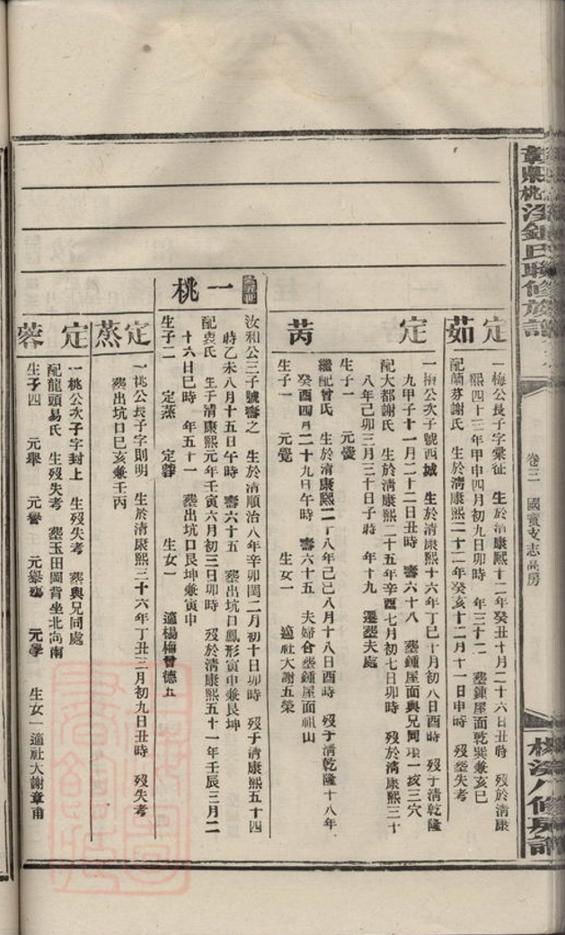 氏聯修族譜
卷三 國寶支志高房
桃溪八修房譜
定茹
一梅公長子字彙征 生於清康熙十二年癸丑十月二十六日丑時 歿於清康
熙四十三年甲申四月初九日卯時 年三十二 塟鍾屋面乾巽兼亥巳
配蘭芬謝氏 生於清康熙二十二年癸亥十二月十一日申時 歿塟失考
定芮
一梅公次子號西城 生於清康熙十六年丁巳十月初八日酉時 歿于清乾隆
九甲子十一月二十二日丑時 壽六十八 塟鍾屋面與兄同墳一亥三穴
配大都謝氏 生於清康熙二十五年辛酉七月初七日卯時 歿於清康熙三十
八年己卯三月三十日子時 年十九 遷塟夫處
生子一 元儀
繼配曾氏 生於清康熙二十八年己巳八月十八日酉時 歿于清乾隆十八年
癸酉四月二十九日午時 壽六十五 夫婦合塟鍾屋面祖山
生子一 元覺 生女一 適社大謝五榮
一桃
汝和公三子號壽之 生於清順治八年辛卯閏二月初十日卯時 歿于清康熙五十四
時乙未八月十五日午時 壽六十五 塟出坑口鳳形寅申兼艮坤
配袁氏 生于清康熙元年壬寅六月初三日卯時 歿於清康熙五十一年壬辰三月二
十六日巳時 年五十一 塟出坑口艮坤兼寅申
生子二 定蒸 定蓉 生女一 適楊梅曾德五
定蒸
一桃公長子字則明 生於清康熙三十六年丁丑三月初九日丑時 歿失考
塟出坑口巳亥兼壬丙
定蓉
一桃公次子字封上 生歿失考 塟與兄同處
配龍頭易氏 生歿失考 塟玉田岡背坐北向南
生子四 元舉 元譽 元 元學 生女一適社大謝章甫